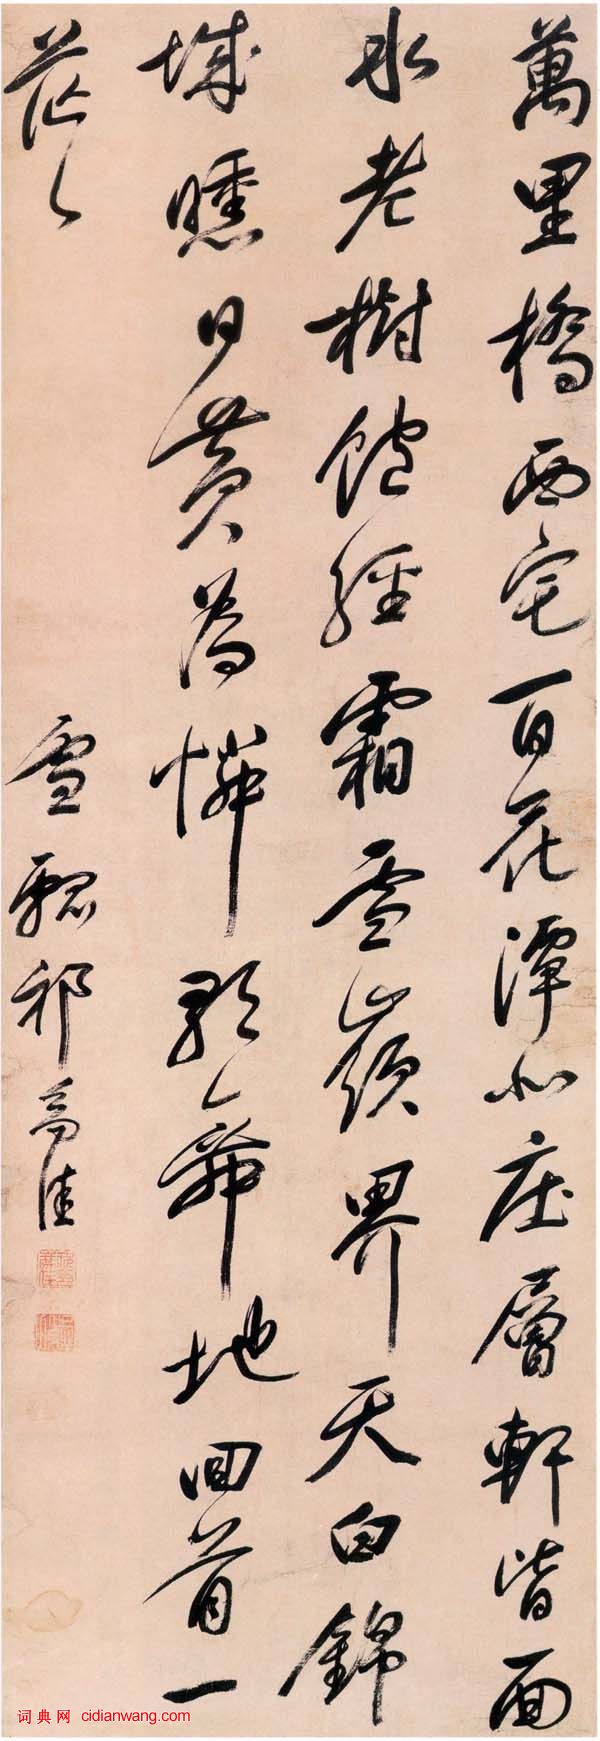 萬里橋西宅百花潭北庄層軒皆面
水老樹飽經霜雪嶺界天白錦
城曛日黄為憐歌舞地回首一
茫々
雪瓢祁豸佳
词典网 cidianwang.com